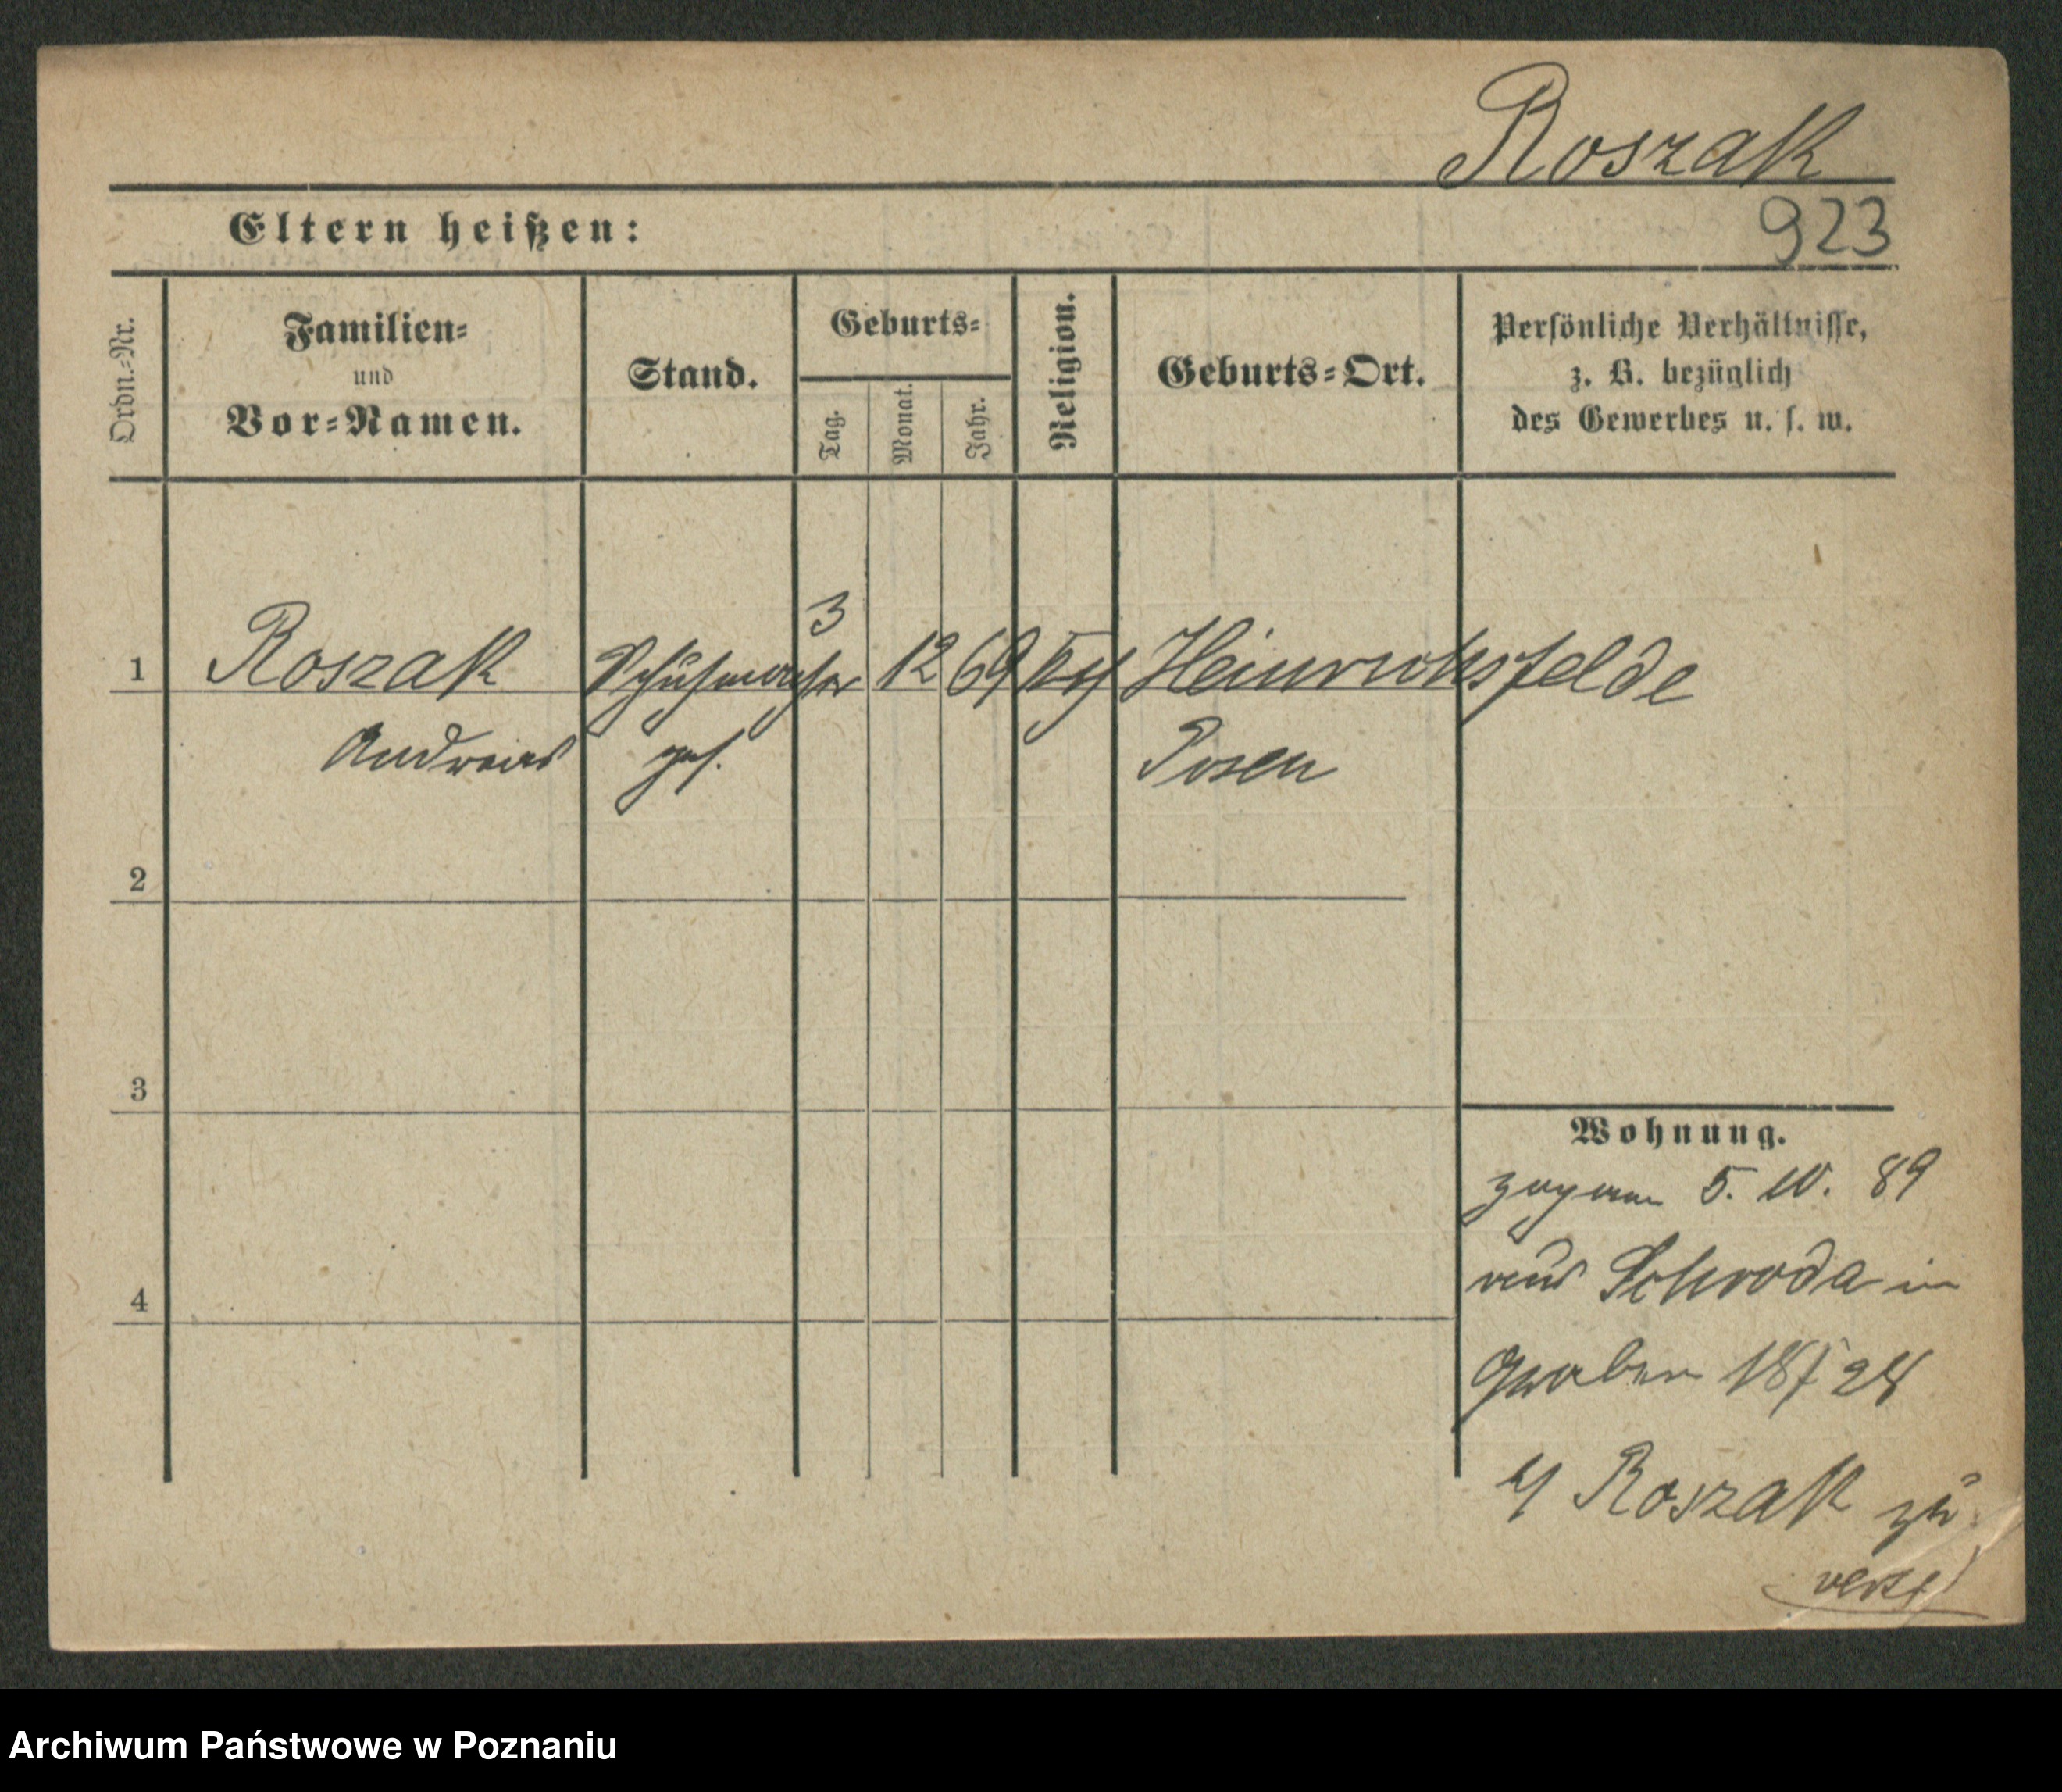 Roszak
923
Eltern heißen:
Ordn.-Nr.
Familien-
und
Vor-Namen.
Stand.
Geburts-
Tag.
Monat.
Jahr.
Religion.
Geburts-Ort.
Persönliche Verhältnisse,
z. B. bezüglich
des Gewerbes u. s. w.
1 Roszak Schuhmacher 3 12 69 kth Heinrichsfelde
Andreas ges. Posen
2
3
4
Wohnung.
zugezogen 5. 10. 89
aus Schroda in
Graben 18/
Roszak zu
Archiwum Państwowe w Poznaniu